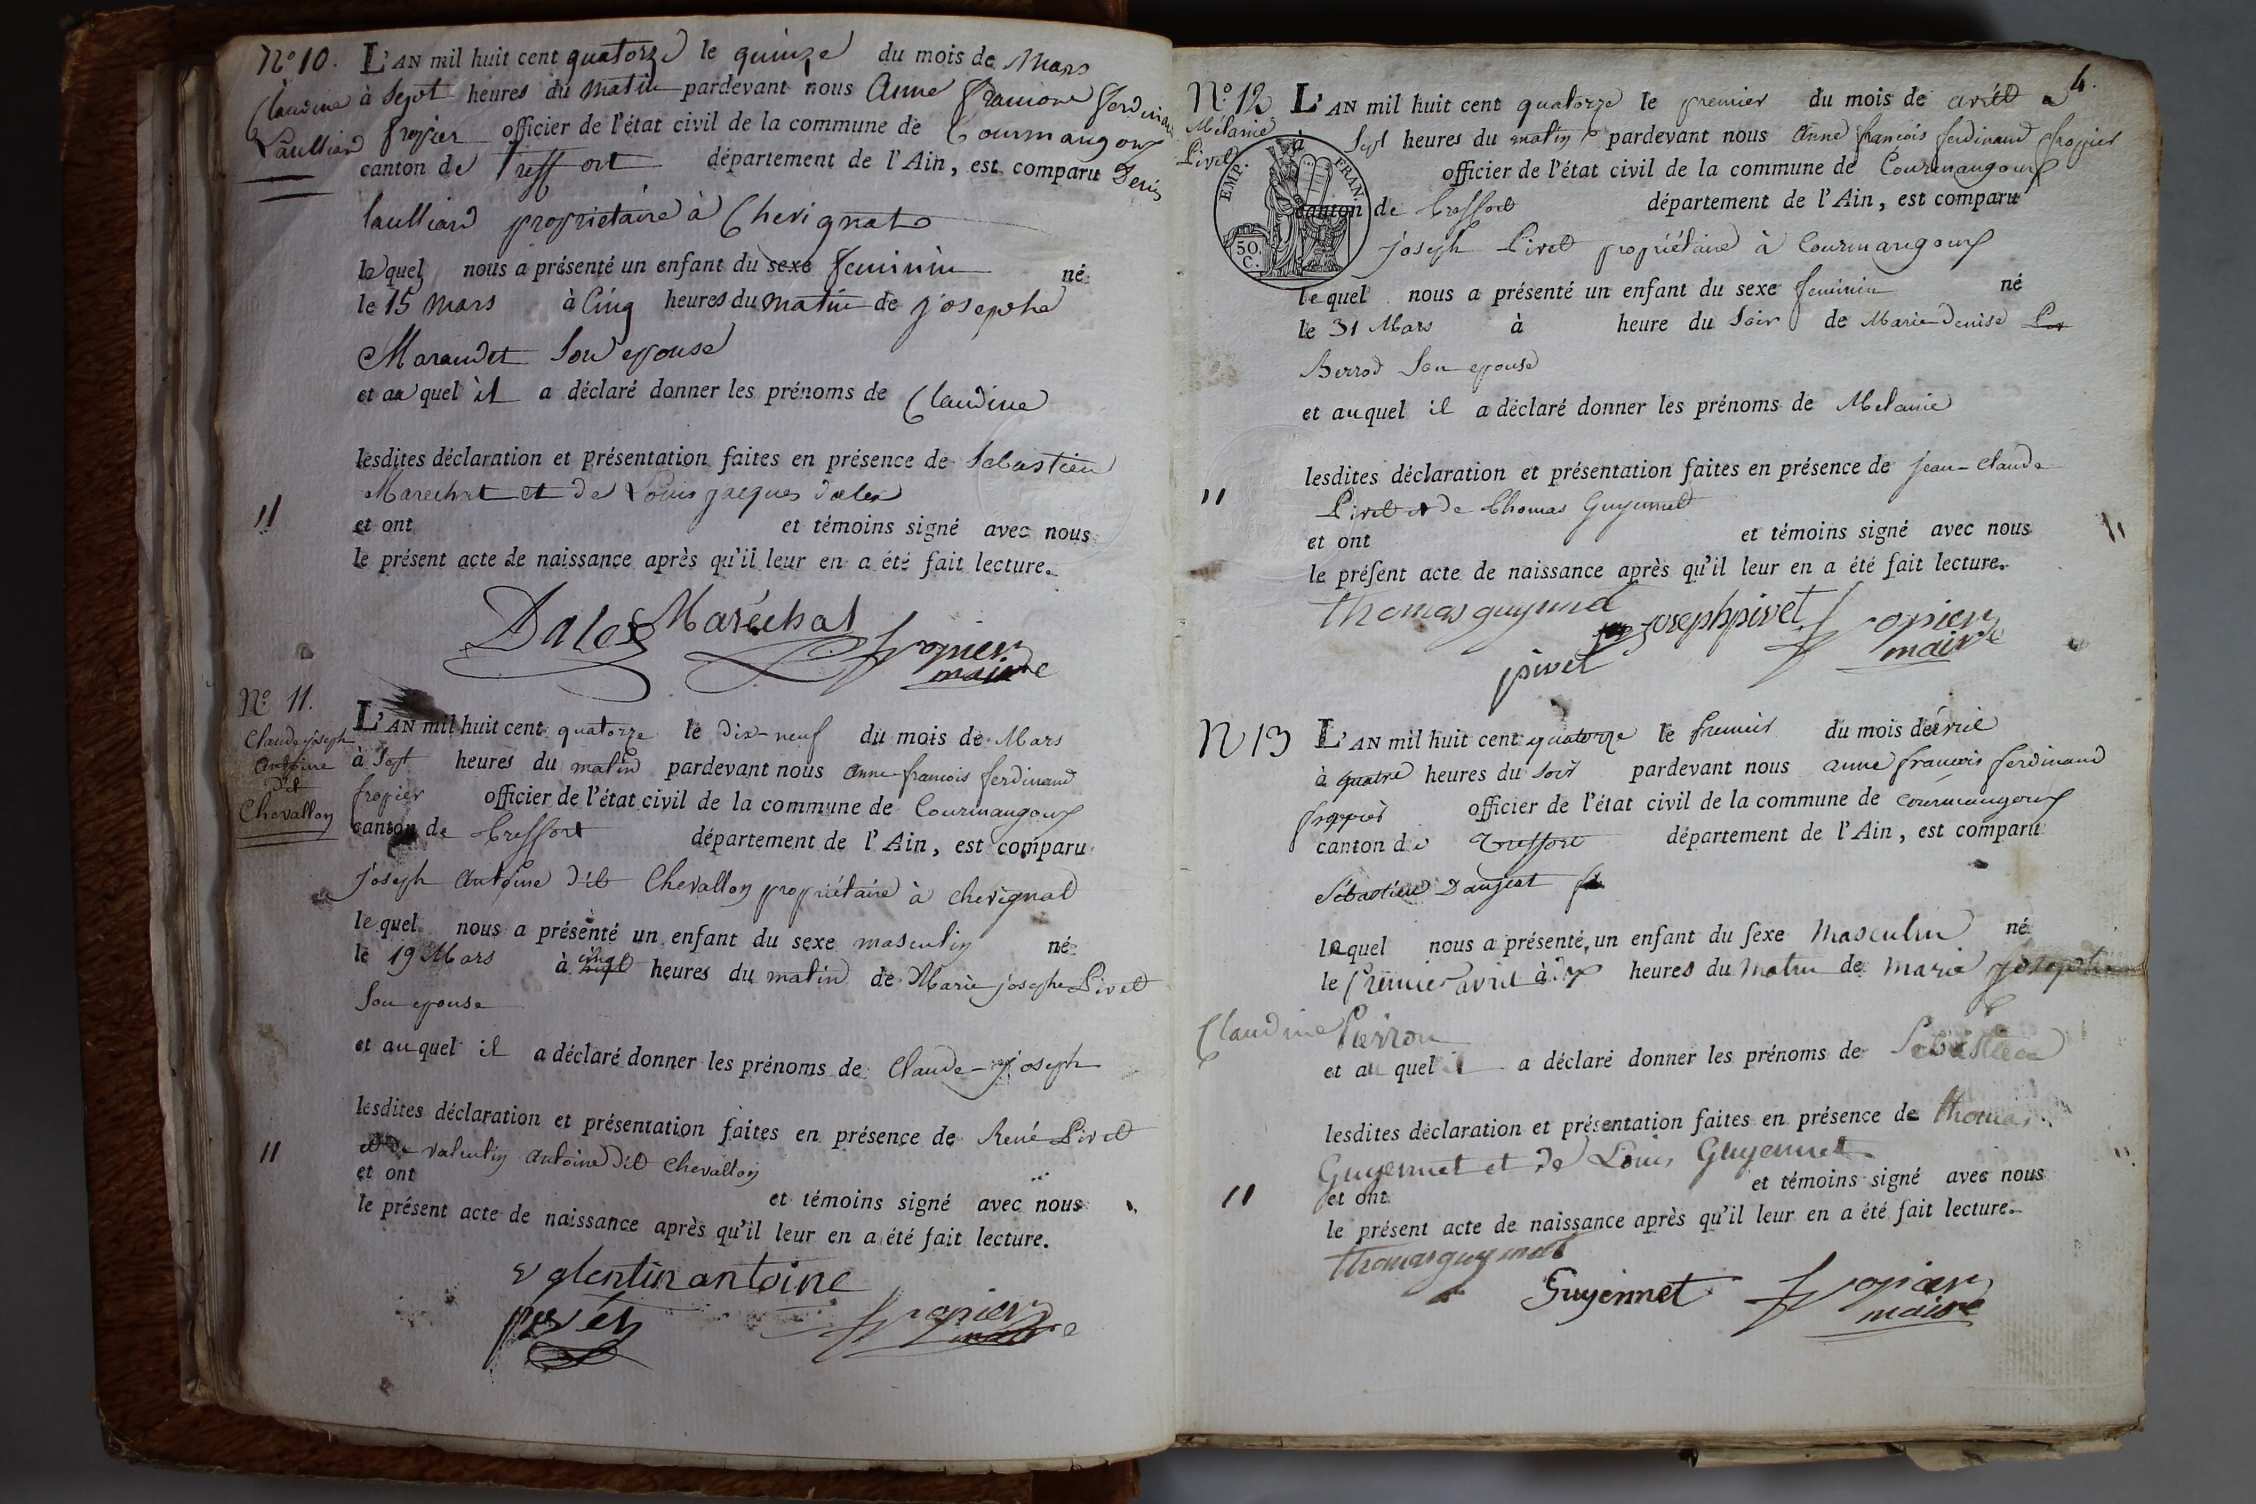 N° 10. L'AN mil huit cent quatorze le quinze du mois de Mars
Claudine à Sept heures du Matin pardevant nous Anne françois ferdinand
Laulliard fropier officier de l'état civil de la commune de Courmangoux
canton de Treffort département de l'Ain, est comparu Denis
laulliard proprietaire à Chevignat
lequel nous a présenté un enfant du sexe feminin né
le 15 Mars à Cinq heures du matin de josephe
Marandet Son epouse
et au quel il a déclaré donner les prénoms de Claudine
lesdites déclaration et présentation faites en présence de Sebastien
Marechat et de Louis jacques dalex
et ont et témoins signé avec nous
le présent acte de naissance après qu'il leur en a été fait lecture.
Dalex Maréchal fropier
maire
N° 11.
L'AN mil huit cent quatorze le dix-neuf du mois de Mars
Claude joseph
antoine
dit
Chevallon
à Sept heures du matin pardevant nous anne françois ferdinand
fropier officier de l'état civil de la commune de Courmangoux
canton de treffort département de l'Ain, est comparu
joseph antoine dit Chevallon propriétaire à chevignat
lequel nous a présenté un enfant du sexe masculin né
le 19 Mars à cinq heures du matin de Marie josephe Pivet
Son epouse
et au quel il a déclaré donner les prénoms de Claude-joseph
lesdites déclaration et présentation faites en présence de René Pivet
et de valentin antoine dit Chevallon
et ont et témoins signé avec nous
le présent acte de naissance après qu'il leur en a été fait lecture.
valentin antoine
fropier
maire
4.
N° 12 L'AN mil huit cent quatorze le premier du mois de avril
Mélanie
Pivet
à Sept heures du matin pardevant nous anne françois ferdinand fropier
officier de l'état civil de la commune de Courmangoux
canton de treffort département de l'Ain, est comparu
EMP. FRAN.
50 C.
joseph Pivet propriétaire à Courmangoux
lequel nous a présenté un enfant du sexe feminin né
le 31 Mars à heure du Soir de Marie denise
Berrod Son epouse
et au quel il a déclaré donner les prénoms de Melanie
lesdites déclaration et présentation faites en présence de jean-claude
Pivet et de thomas Guyennet
et ont et témoins signé avec nous
le présent acte de naissance après qu'il leur en a été fait lecture.
thomas guyennet joseph pivet fropier
pivet maire
N 13 L'AN mil huit cent quatorze le premier du mois de avril
à quatre heures du soir pardevant nous anne francois ferdinand
fropier officier de l'état civil de la commune de courmangoux
canton de treffort département de l'Ain, est comparu
Sébastien Daujat
lequel nous a présenté un enfant du sexe masculin né
le premier avril à dix heures du matin de marie josephe
Claudine Pierron
et au quel il a déclaré donner les prénoms de Sebastien
lesdites déclaration et présentation faites en présence de thomas
Guyennet et de Louis Guyennet
et ont et témoins signé avec nous
le présent acte de naissance après qu'il leur en a été fait lecture.
thomas guyennet
Guyennet fropier
maire